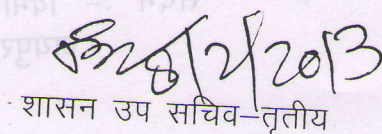 /2/2013
शासन उप सचिव–तृतीय